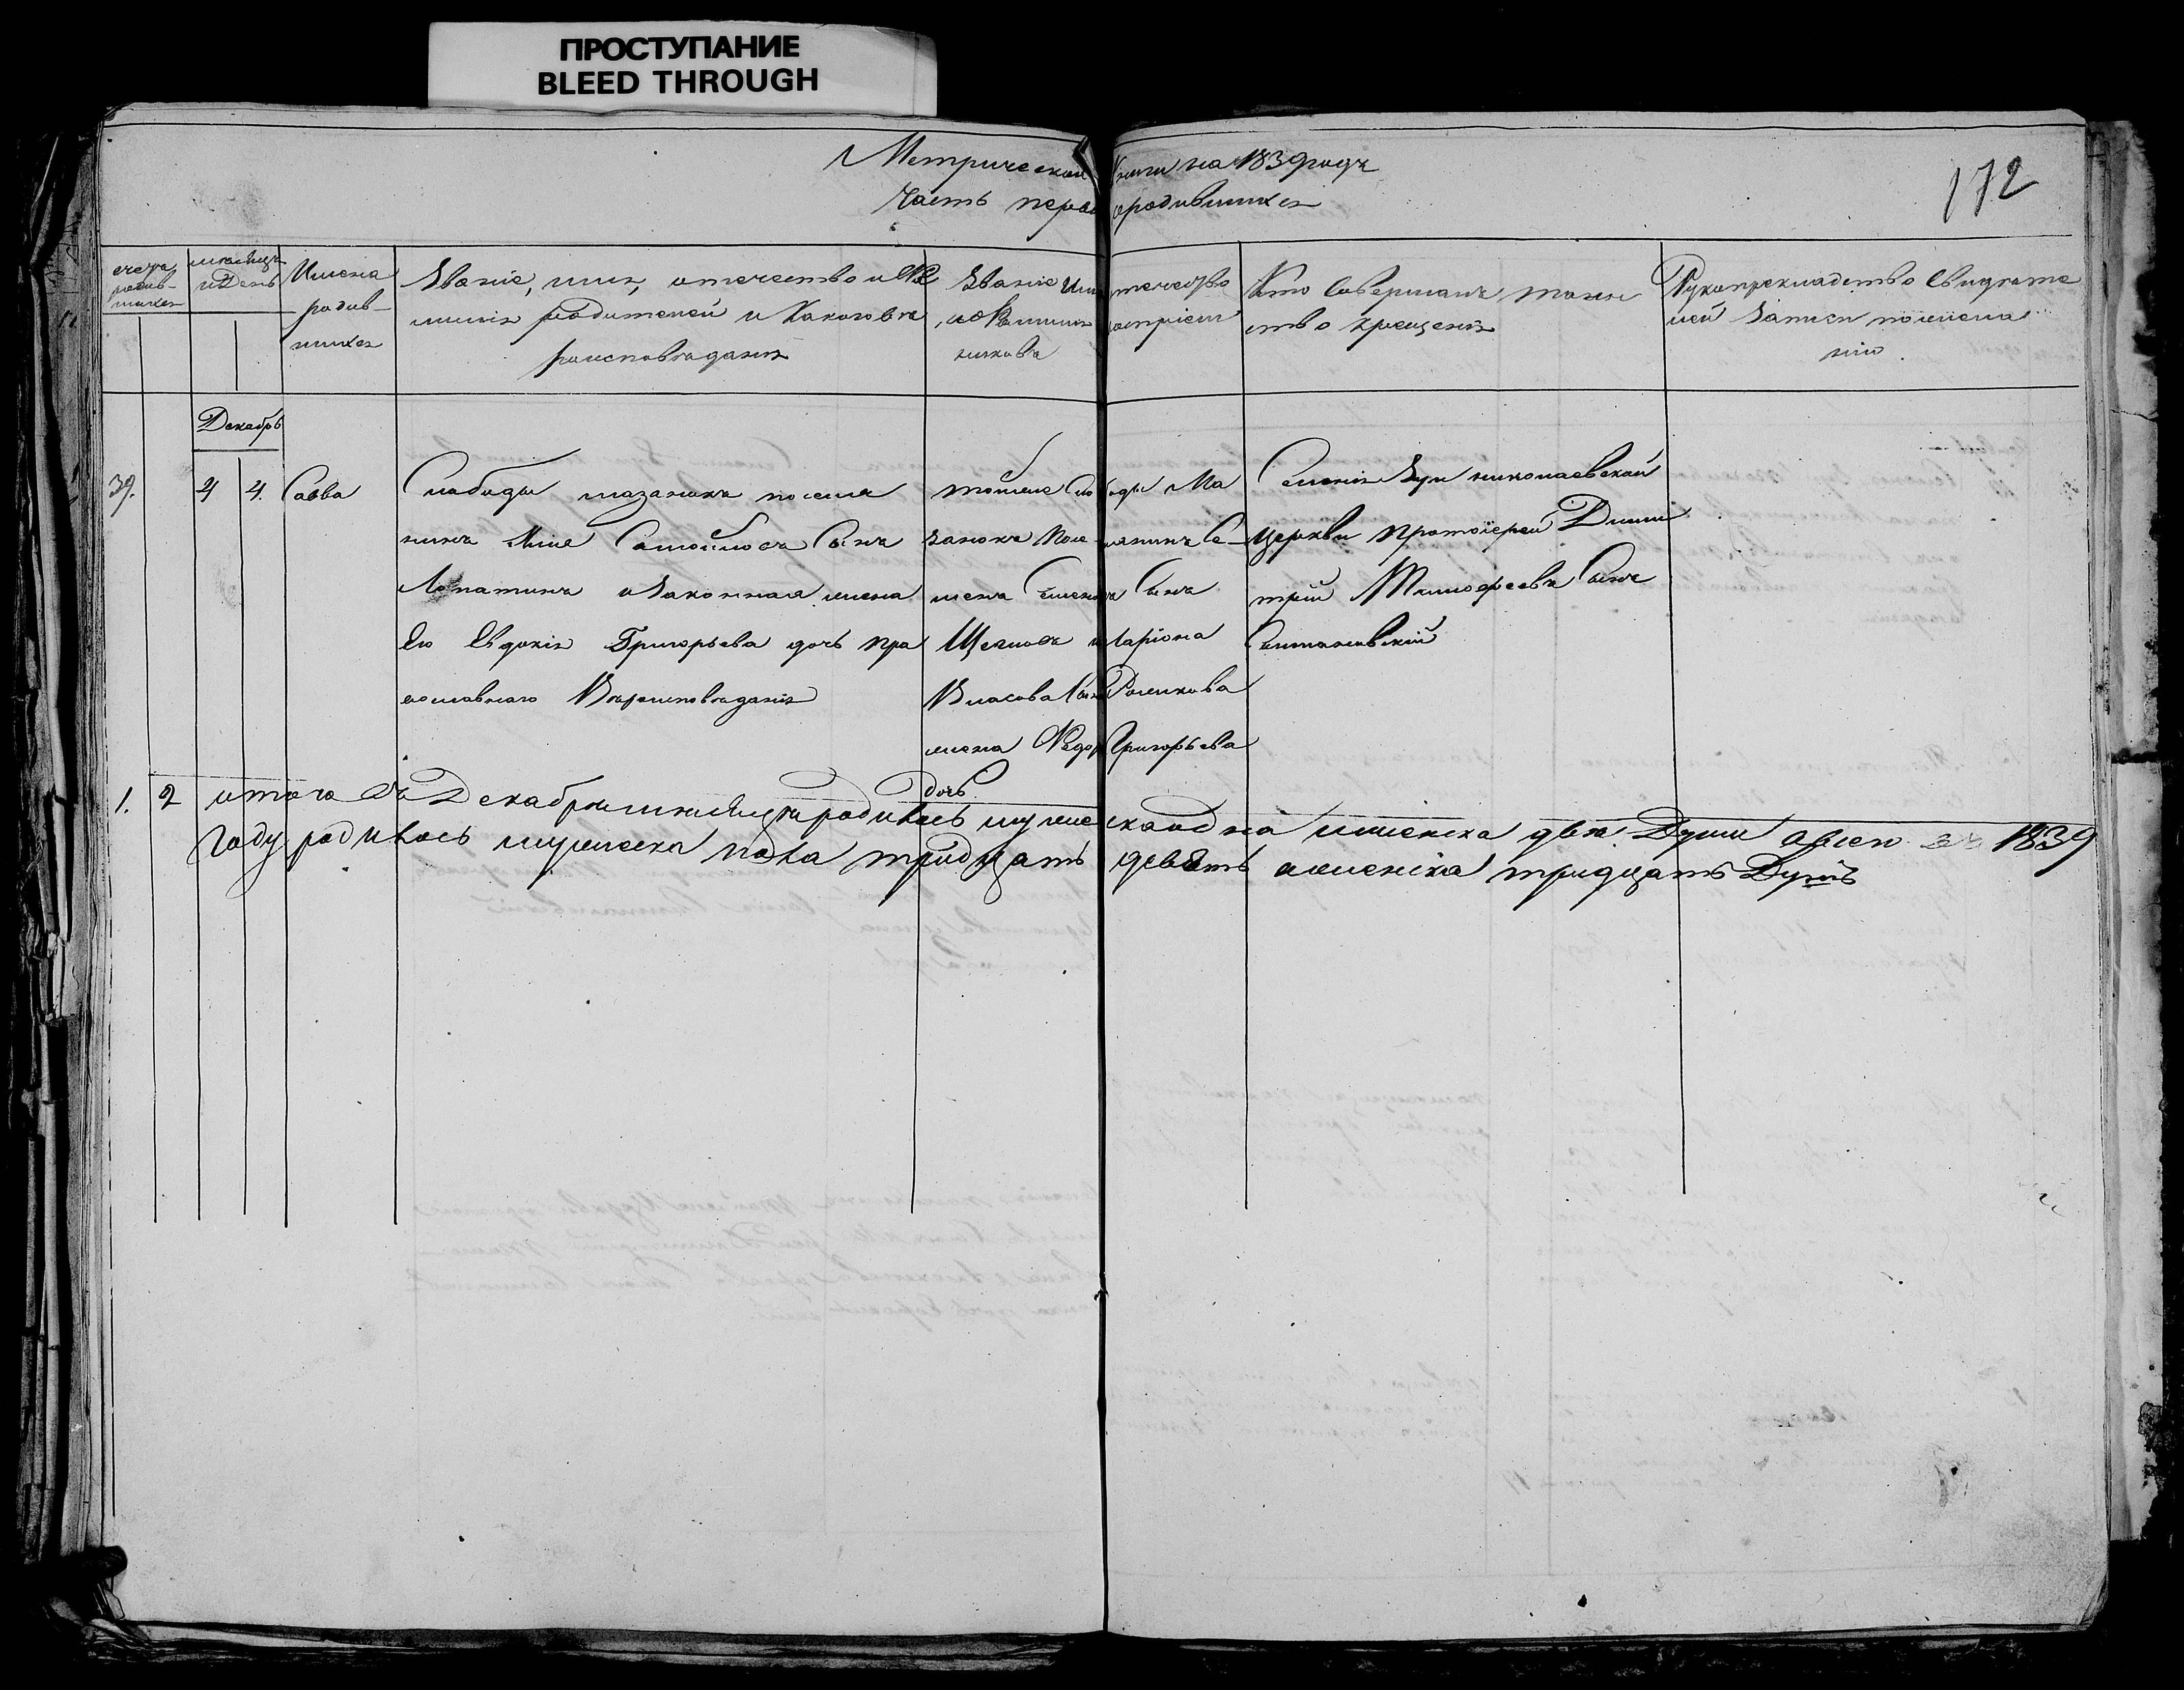 ПРОСТУПАНИЕ
BLEED THROUGH
Метрической книги на 1839 годъ
Часть перва о родившихся
172
счетъ родив-шихся
мѣсяцъ и День
Имена родив-шихся
Званіе, имя, отечество и
милія родителей и Каковаго вѣ
роисповѣданія
Званіе Имя отечество
и Фамилія воспріем
никовъ
Кто Совершалъ таин
ство крещенія
Рукоприкладство Свидѣте
лей записи по желанію
Декабрь
39. 4 4. Савва
Слободы мазанокъ поселя
нинъ Самойловъ Сынъ
Лопатинъ и Законная жена
Его Евдокія Григорьева дочь пра
вославнаго Вѣроисповѣданія
тойже Слободы Ма
занокъ Поселянинъ Се
менъ Семеновъ Сынъ
Щегловъ иларіона
Власова Сына
жена Григорьева
Дочь
Николаевской
Церкви протоіерей Дими
трій Тимофеевъ Сынъ
1. 2 итого въ Декабрѣ мѣсяцѣ родилось мужеска одна и женска двѣ Души авсего въ 1839
Году родилось мужеска пола тридцать девять аженска тридцать Душъ